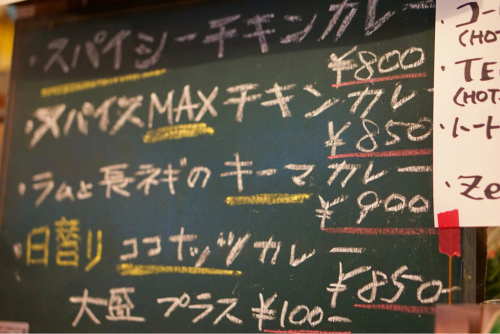 ・スパイシーチキンカレー
¥800
・スパイスMAXチキンカレー
¥850
・ラムと長ネギのキーマカレー
¥900
・日替り ココナッツカレー
¥850-
大盛 プラス ¥100-
(HOT
・TE
(HOT
・ハート
・Ze